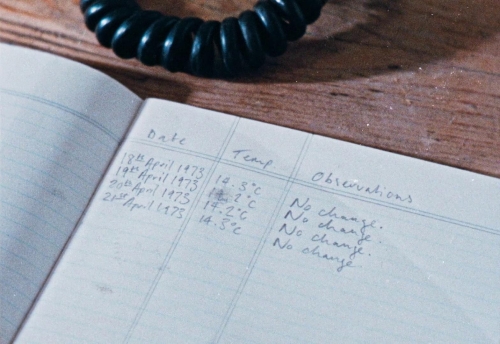 Date Temp Observations
18th April 1973 14.3°C No change.
19th April 1973 14.2°C No change.
20th April 1973 14.2°C No change.
21st April 1973 14.3°C No change